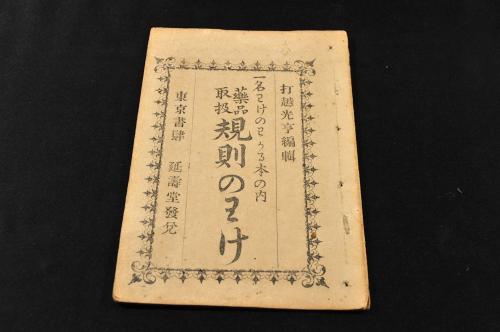 打越光亨編輯
一名わけのわかる本の内
藥品取扱規則のわけ
東京書肆 延壽堂發兌